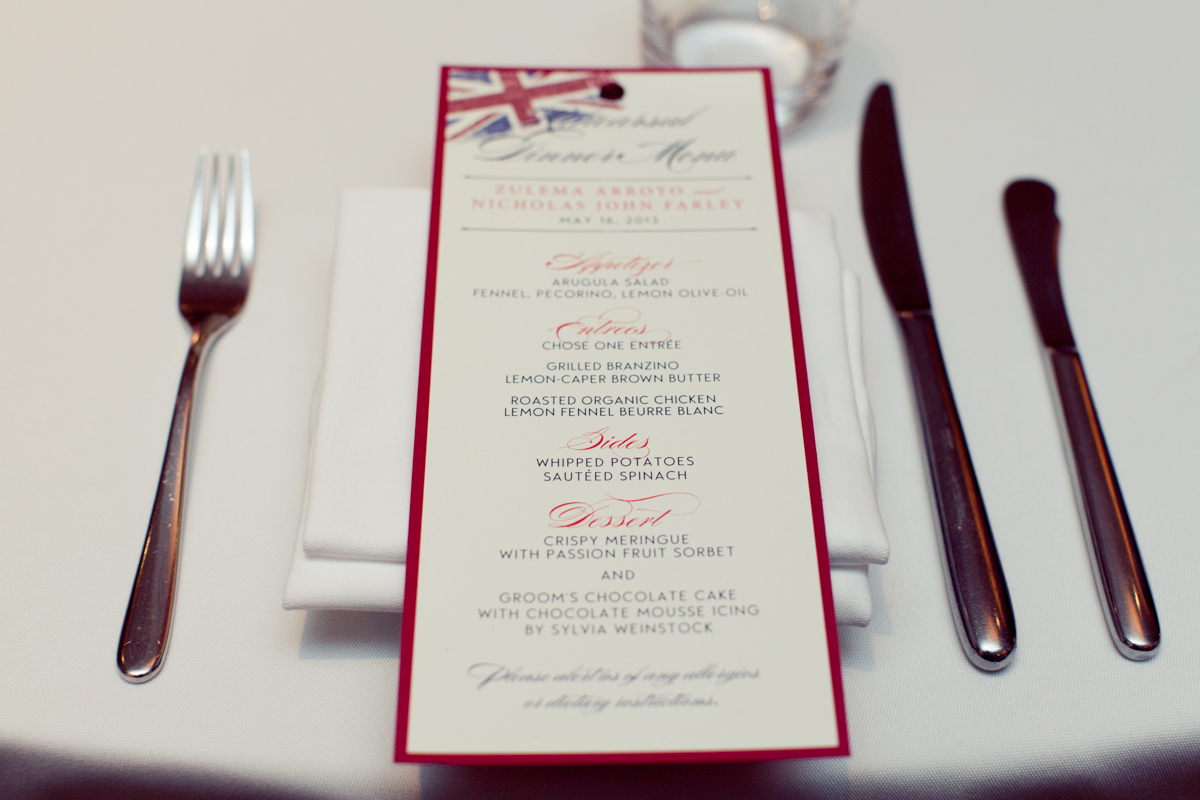 Rehearsal
Dinner Menu
ZULEMA ARROYO and
NICHOLAS JOHN FARLEY
MAY 16, 2013
Appetizer
ARUGULA SALAD
FENNEL, PECORINO, LEMON OLIVE-OIL
Entrées
CHOSE ONE ENTRÉE
GRILLED BRANZINO
LEMON-CAPER BROWN BUTTER
ROASTED ORGANIC CHICKEN
LEMON FENNEL BEURRE BLANC
Sides
WHIPPED POTATOES
SAUTÉED SPINACH
Dessert
CRISPY MERINGUE
WITH PASSION FRUIT SORBET
AND
GROOM'S CHOCOLATE CAKE
WITH CHOCOLATE MOUSSE ICING
BY SYLVIA WEINSTOCK
Please alert us of any allergies
or dietary restrictions.